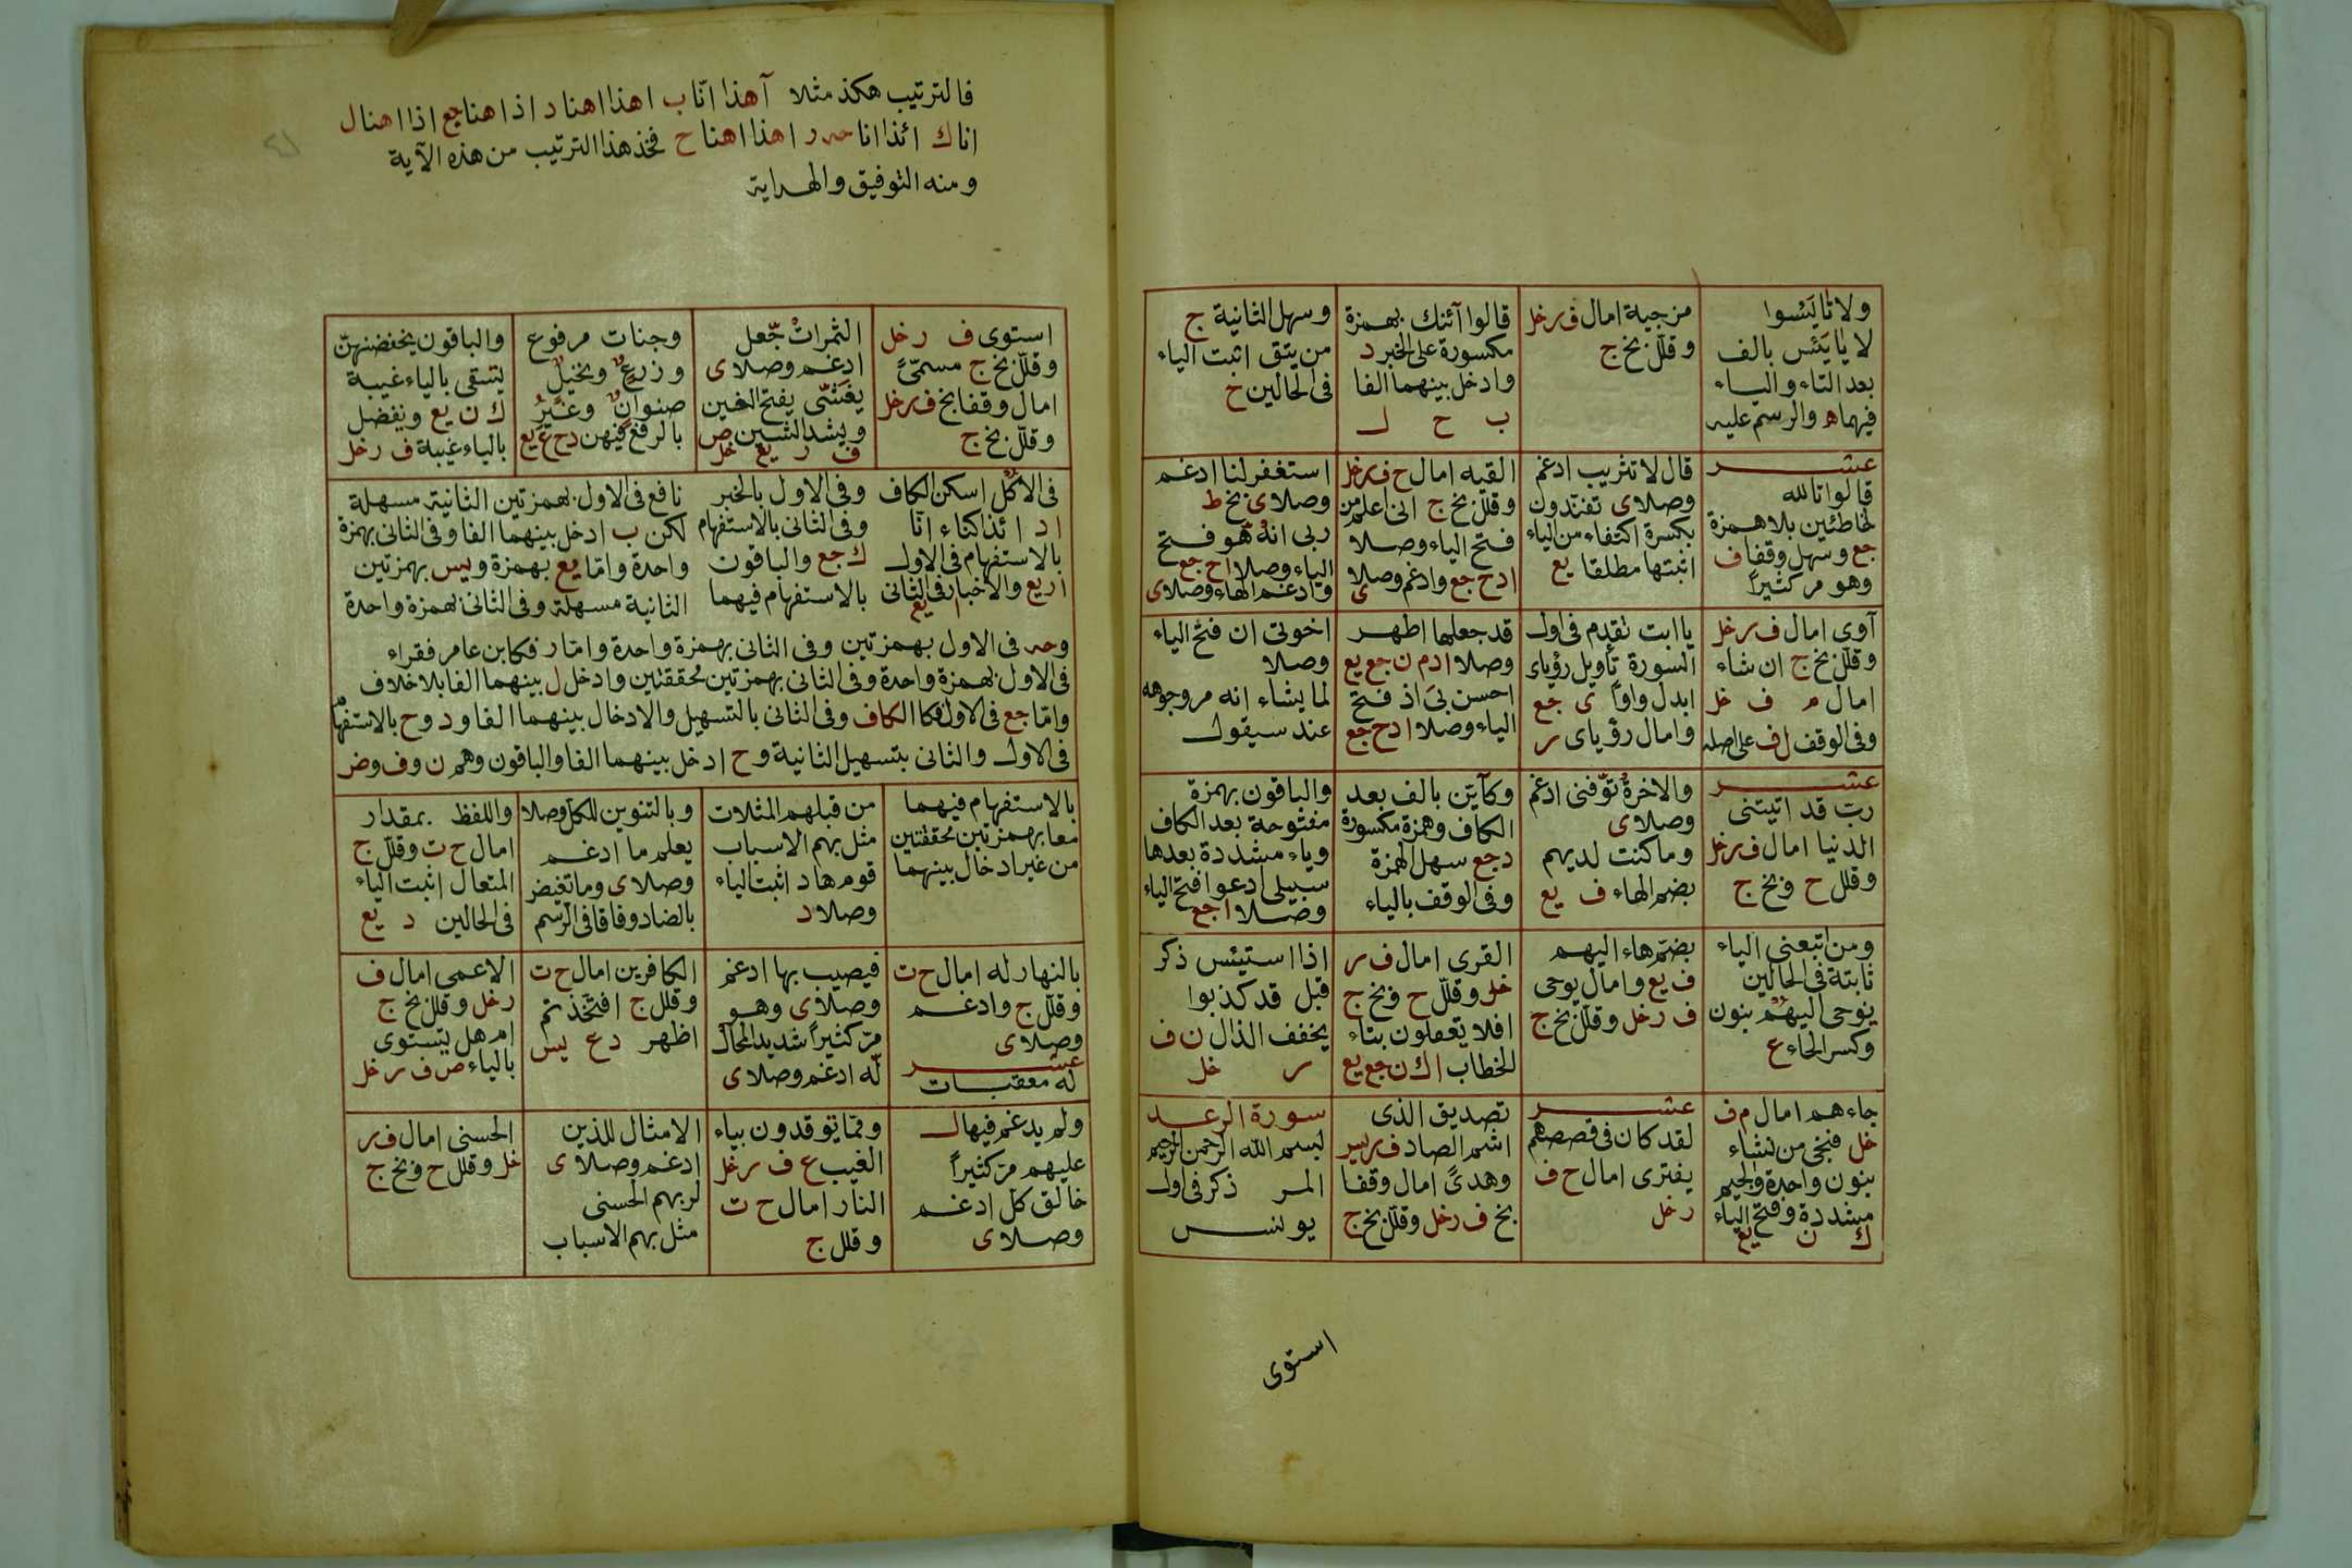 ولا تايَئسوا
لا يايَئَس بالف
بعد التاء والياء
فيهما ه والرسم عليه
مزجية امال ف ر خل
وقلّل بخ ج
قالوا آئنك بهمزة
مكسورة على الخبر د
وادخل بينهما الفا
ب ح ل
وسهل الثانية ج
من يتق اثبت الياء
فى الحالين خ
عشر
قالوا تالله
لخاطئين بلا همزة
جع وسهل وقفا ف
وهو مر كثيراً
قال لا تثريب ادغم
وصلا ى تفندون
بكسرة اكتفاء من الياء
اثبتها مطلقا يع
القيه امال ح ف ر خل
وقلّل بخ ج انى اعلم من
فتح الياء وصلا
ا د ح جع وادغم وصلا ى
استغفر لنا ادغم
وصلا ى بخ ط
ربى انه هو فتح
الياء وصلا ا ح جع
وادغم الهاء وصلا ى
آوى امال ف ر خل
وقلّل بخ ج ان شاء
امال م ف خل
وفى الوقف ل ف على اصله
يا ابت تقدم فى اول
السورة تأويل رؤياى
ابدل واوًا ى جع
وامال رؤياى ر
قد جعلها اظهر
وصلا ا د م ن جع يع
احسن بىَ اذ فتح
الياء وصلا ا د ح جع
اخوتى ان فتح الياء
وصلا
لما يشاء انه مر وجوهه
عند سيقول
عشر
ربّ قد اتيتنى
الدنيا امال ف ر خل
وقلل ح وبخ ج
والاخرةُ توّفنى ادغم
وصلا ى
وما كنت لديهم
بضم الهاء ف يع
وكآيّن بالف بعد
الكاف وهمزة مكسورة
د جع سهل الهمزة
وفى الوقف بالياء
والباقون بهمزة
مفتوحة بعد الكاف
وياء مشددة بعدها
سبيلى ادعوا فتح الياء
وصلا ا جع
ومن اتبعنى الياء
ثابتة فى الحالين
نوحى اليهم بنون
وكسر الحاء ع
بضمّ هاء اليهم
ف يع وامال يوحى
ف ر خل وقلّل بخ ج
القرى امال ف ر
خل وقلّل ح وبخ ج
افلا تعقلون بتاء
الخطاب ا ك ن جع يع
اذا استيئس ذكر
قبل قد كذبوا
يخفف الذال ن ف
ر خل
جاءهم امال م ف
خل فنجى من نشاء
بنون واحدة والجيم
مشددة وفتح الياء
ك ن يع
عشر
لقد كان فى قصصهم
يفترى امال ح ف
ر خل
تصديق الذى
اشم الصاد ف ر يس
وهدىً امال وقفا
بخ ف ر خل وقلّل بخ ج
سورة الرعد
بسم الله الرحمن الرحيم
المر ذكر فى اول
يونس
استوى
فالترتيب هكذ مثلا آهذا انّا ب اهذا اهنا د اذا هنا جع اذا اهنا ل
انا ك ائذا انا حه ر اهذا اهنا ح فخذ هذا الترتيب من هذه الآية
ومنه التوفيق والهداية
استوى ف ر خل
وقلّل بخ ج مسمّىً
امال وقفا بخ ف ر خل
وقلّل بخ ج
الثمراتْ جّعل
ادغم وصلا ى
يغشّى يفتح الغين
ويشد الشين ص
ف ر يع خل
وجنات مرفوع
وزرعٌ ونخيلٌ
صنوانٌ وغيرُ
بالرفع فيهن د ح ع يع
والباقون بخفضهنّ
يسقى بالياء غيبة
ك ن يع ونفضل
بالياء غيبة ف ر خل
فى الاكل اسكن الكاف
ا د ائذا كناء انّا
بالاستفهام فى الاول
ا ر يع والاخبار فى الثانى
وفى الاول بالخبر
وفى الثانى بالاستفهام
ك جع والباقون
بالاستفهام فيهما
نافع فى الاول بهمزتين الثانية مسهلة
لكن ب ادخل بينهما الفا وفى الثانى بهمزة
واحدة وامّا يع بهمزة ويس بهمزتين
الثانية مسهلة وفى الثانى بهمزة واحدة
وحه فى الاول بهمزتين وفى الثانى بهمزة واحدة وامّا ر فكابن عامر فقراء
فى الاول بهمزة واحدة وفى الثانى بهمزتين محققتين وادخل ل بينهما الفا بلا خلاف
وامّا جع فى الاول فكا الكاف وفى الثانى بالتسهيل والادخال بينهما الفا و د و ح بالاستفهام
فى الاول والثانى بتسهيل الثانية و ح ادخل بينهما الفا والباقون وهم ن و ف وضر
بالاستفهام فيهما
معا بهمزتين محققتين
من غير ادخال بينهما
من قبلهم المثلات
مثل بهم الاسباب
قوم هاد اثبت الياء
وصلا د
وبالتنوين للكل وصلا
يعلم ما ادغم
وصلا ى وما تغيض
بالضاد وفاقا فى الرسم
واللفظ بمقدار
امال ح ت وقلّل ج
المتعال اثبت الياء
فى الحالين د يع
بالنهار له امال ح ت
وقلّل ج وادغم
وصلا ى
عشر
له معقبات
فيصيب بها ادغم
وصلا ى وهو
مرّ كثيراً شديد المحال
لّه ادغم وصلا ى
الكافرين امال ح ت
وقلل ج افتخذتم
اظهر د ع يس
الاعمى امال ف
ر خل وقلل بخ ج
ام هل يستوى
بالياء ص ف ر خل
ولم يدغم فيها ل
عليهم مرّ كثيراً
خالق كل ادغم
وصلا ى
وممّا توقدون بياء
الغيب ع ف ر خل
النار امال ح ت
وقلل ج
الامثال للذين
ادغم وصلا ى
لربهم الحسنى
مثل بهم الاسباب
الحسنى امال ف ر
خل وقلل ح وبخ ج